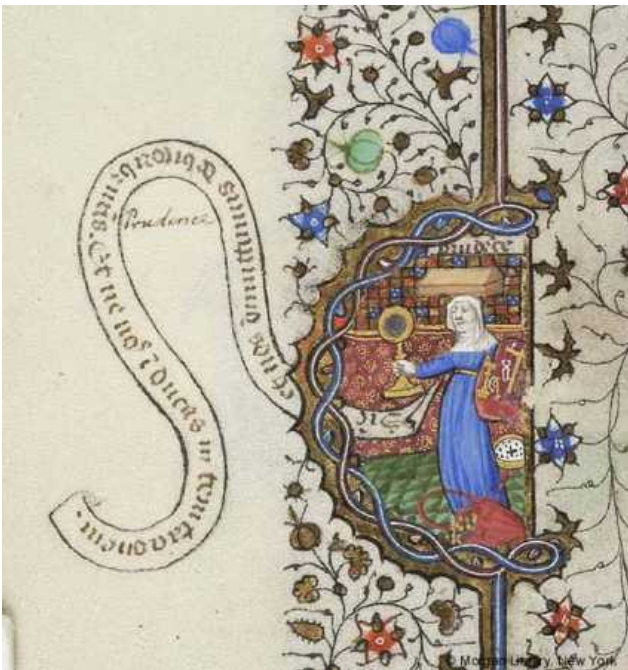 et nos dimittimus debitorib' nris. Et ne nos iducas in temtacionem.
Prudence
prudece
© Morgan Library, New York